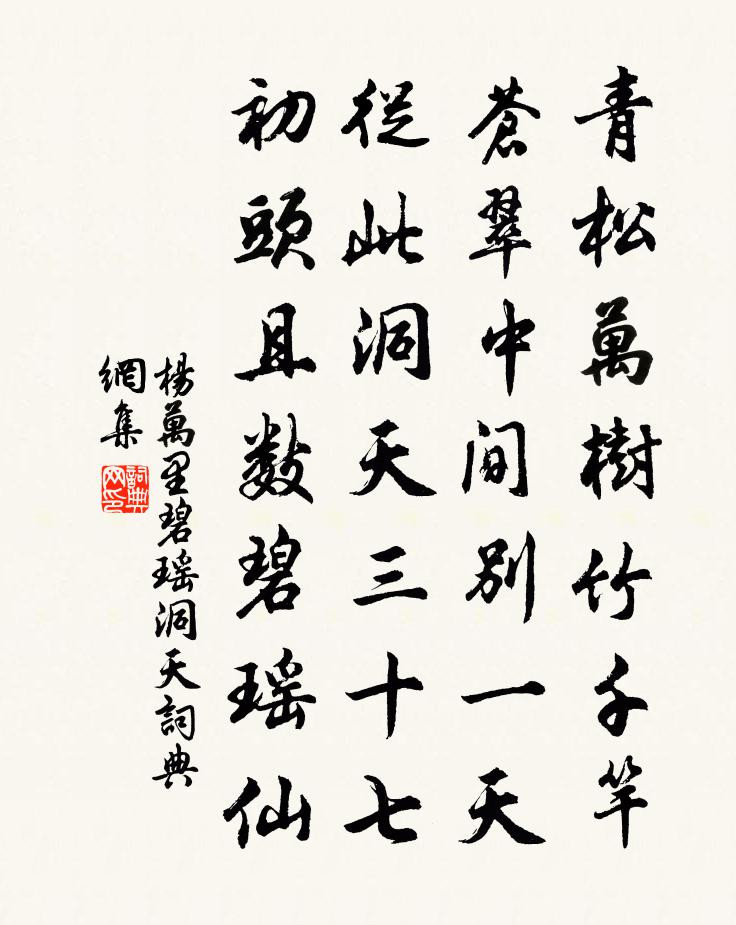 青松萬樹竹千竿
蒼翠中間別一天
從此洞天三十七
初頭且數碧瑶仙
楊萬里碧瑶洞天詞典
網集
詞典
网印